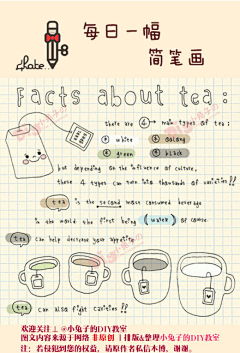 每日一幅
简笔画
Facts about tea:
there are 4 main types of tea:
white oolong
green black
but depending on the influence of culture,
these 4 types can turn into thousands of varieties!!
tea is the second most consumed beverage
in the world the first being water of course
tea can help decrease your appetite
tea can also fight cavities!!
欢迎关注:@小兔子的DIY教室
图文内容来源于网络 非原创 | 排版&整理小兔子的DIY教室
注：若侵犯到您的权益，请原作者私信本博，谢谢。